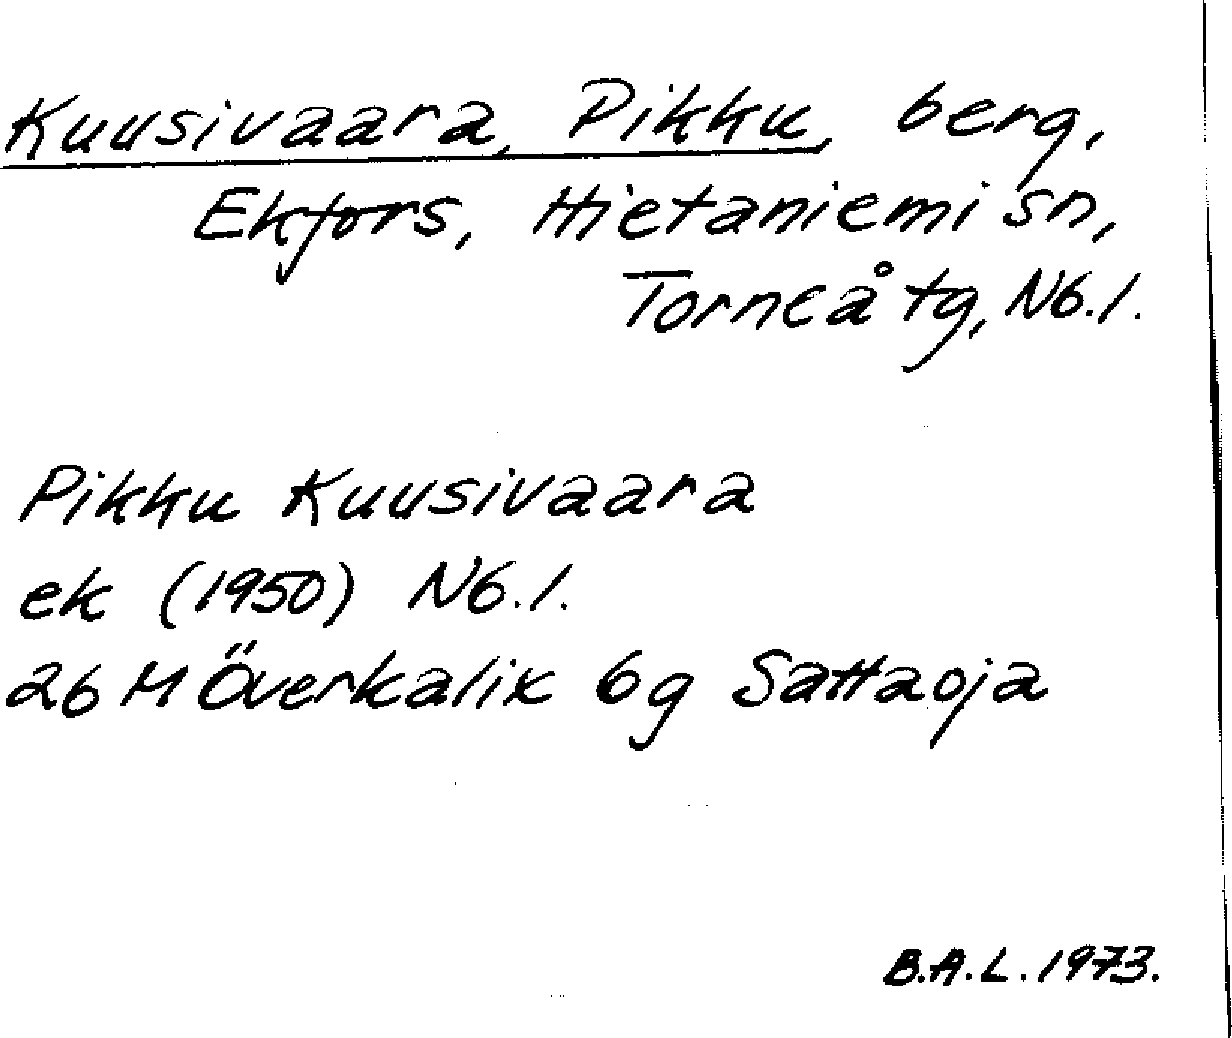 Kuusivaara, Pikku, berg,
Ekfors, Hietaniemi sn,
Torneå tg, Nb.l.
Pikku Kuusivaara
ek (1950) Nb.l.
26 M Överkalix 6g Sattaoja
B.A.L. 1973.